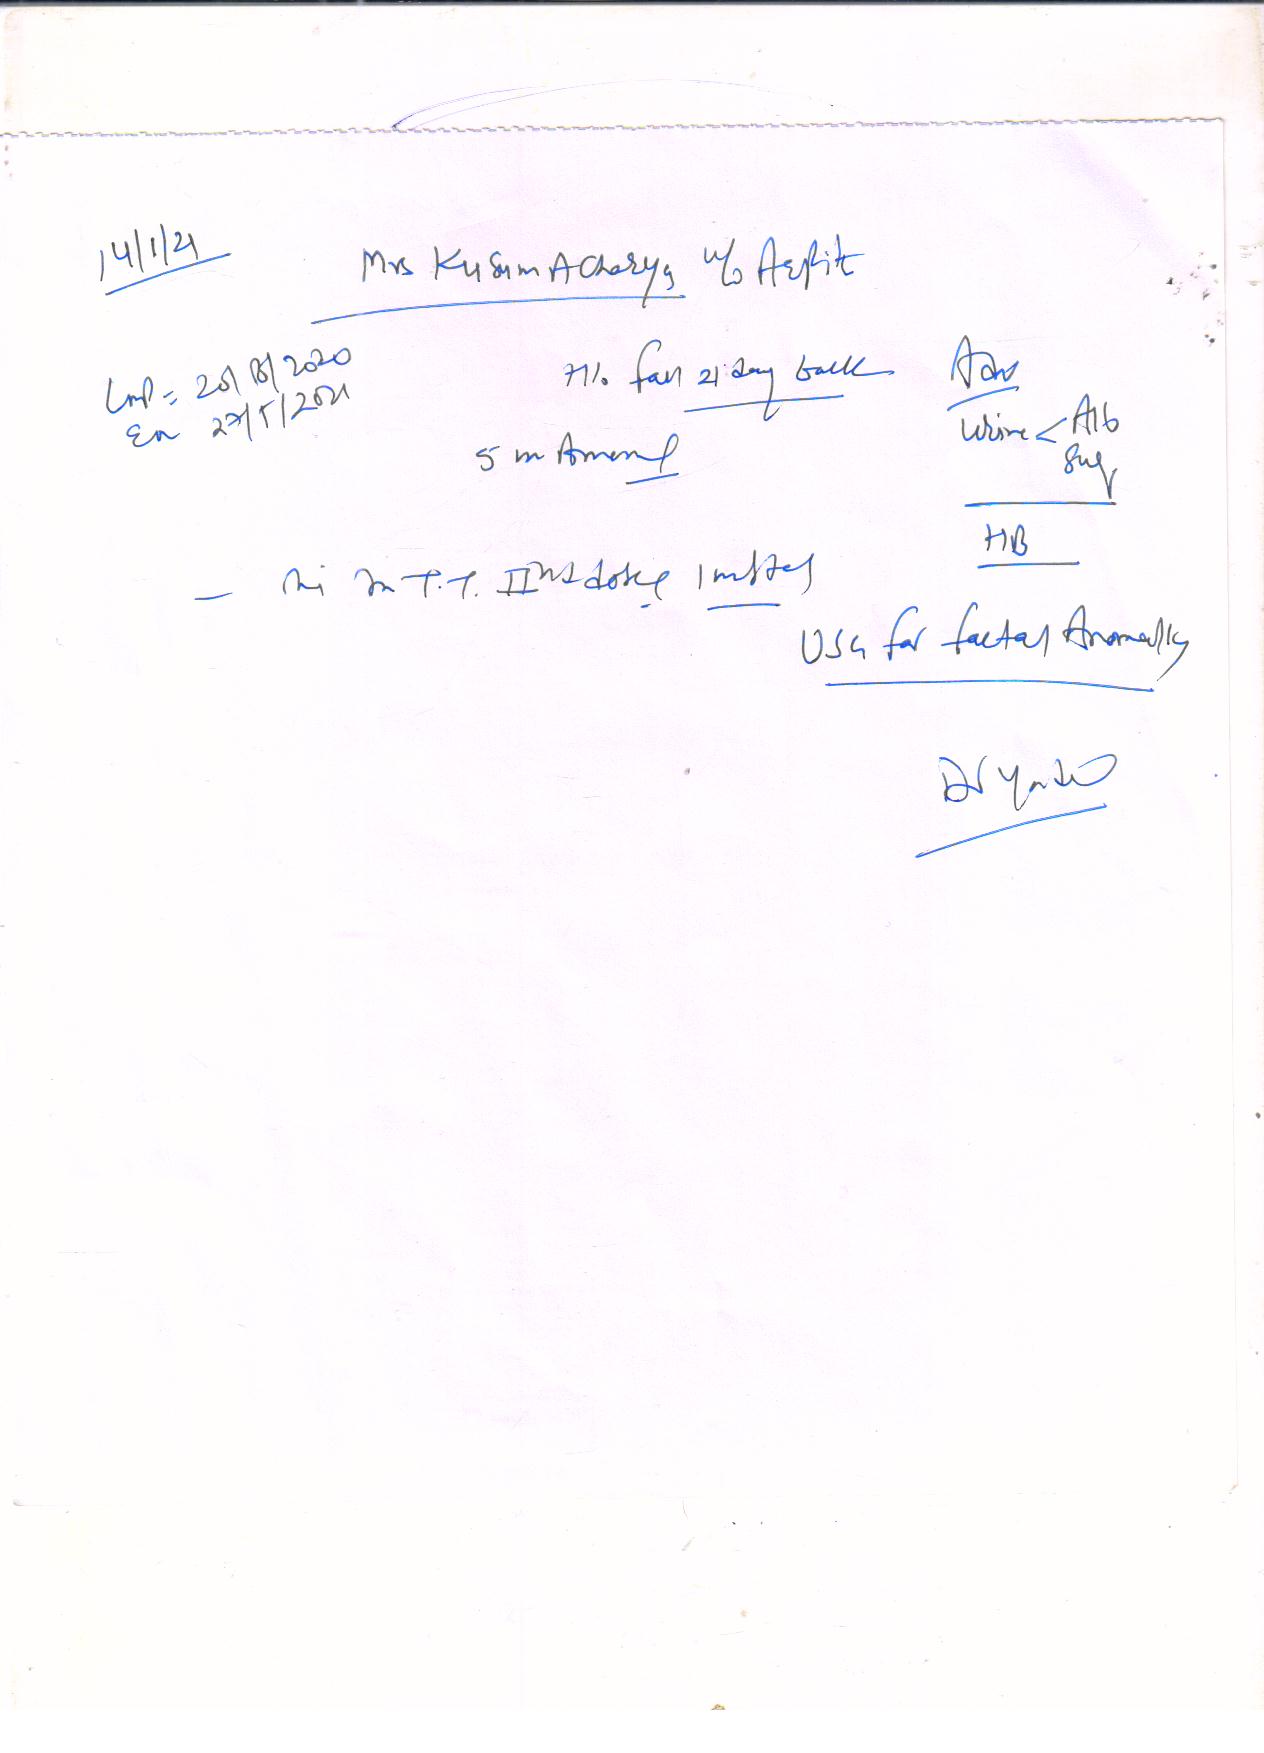 14/1/21
Mrs Kusum Acharya w/o Arpit
LMP = 20/8/2020
27/5/2021
H/o fall 21 day back
5 m Ameno
Adv
Urine < Alb
Sug
HB
T.T. IInd dose
USG for faetal Anomally
Dr